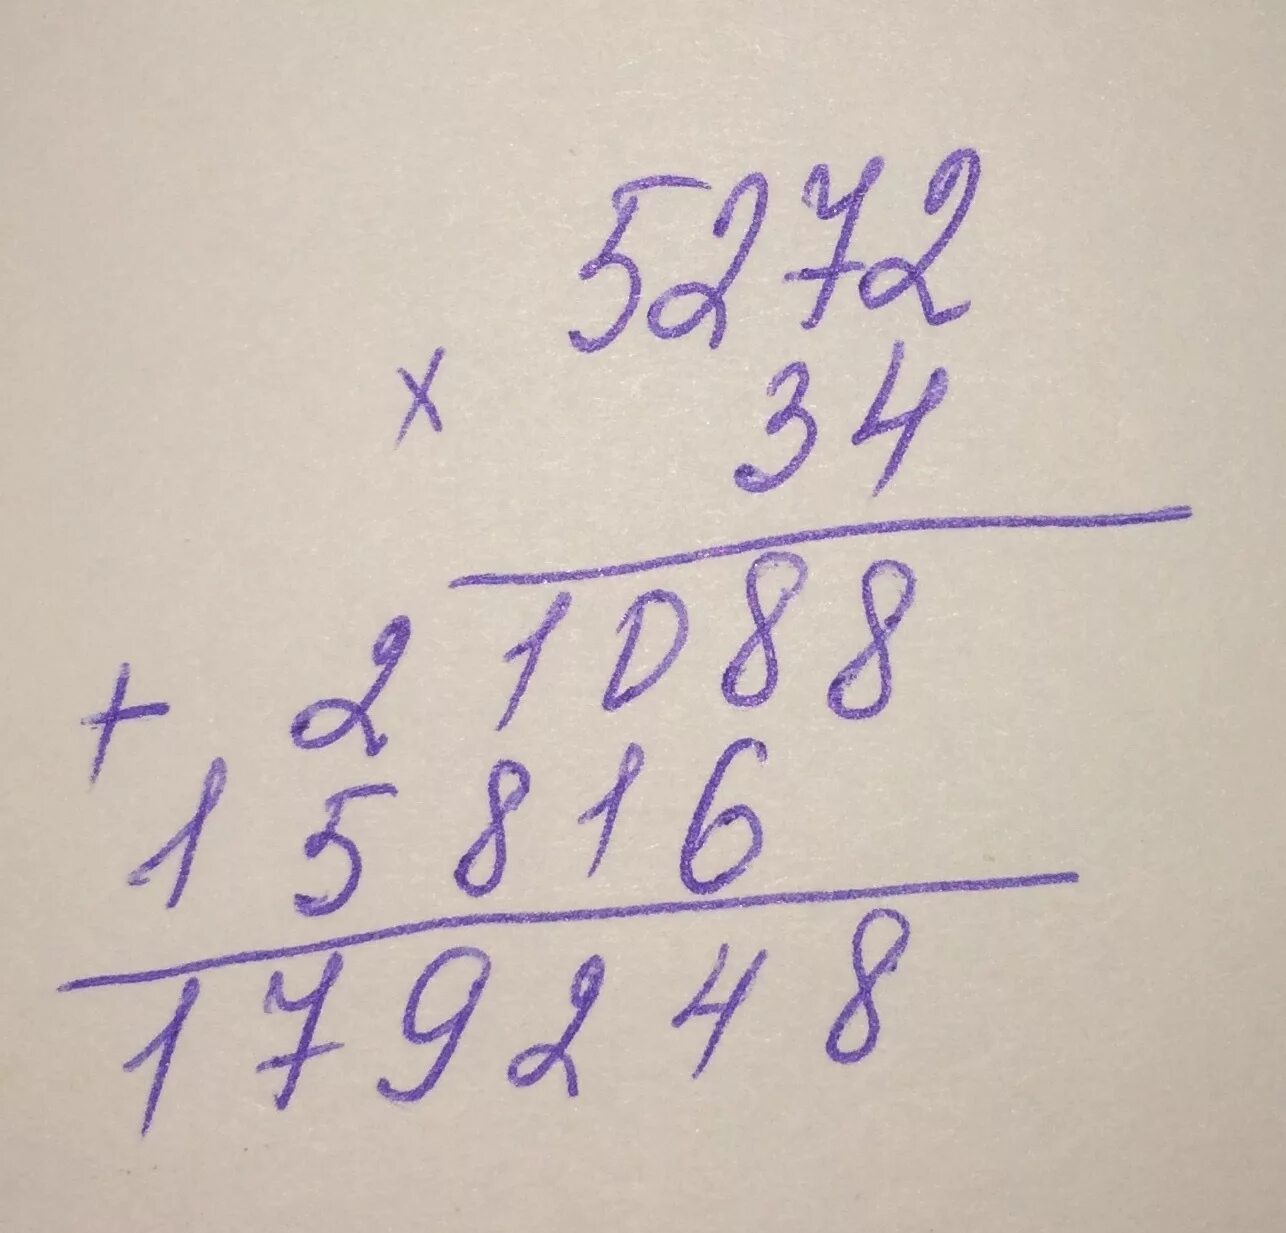 5272
x 34
+ 21088
15816
179248